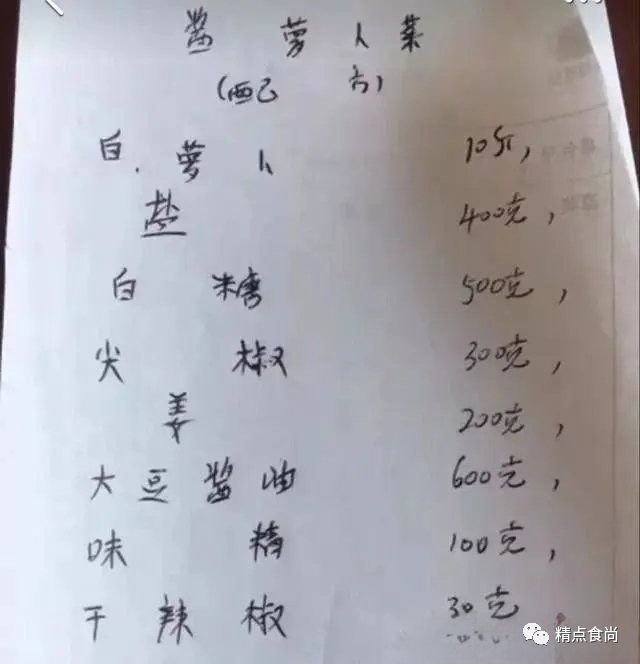 酱萝卜菜
(配方)
白.萝卜 10斤,
盐 400克,
白糖 500克,
尖椒 300克,
姜 200克,
大豆酱油 600克,
味精 100克,
干辣椒 30克,
精点食尚